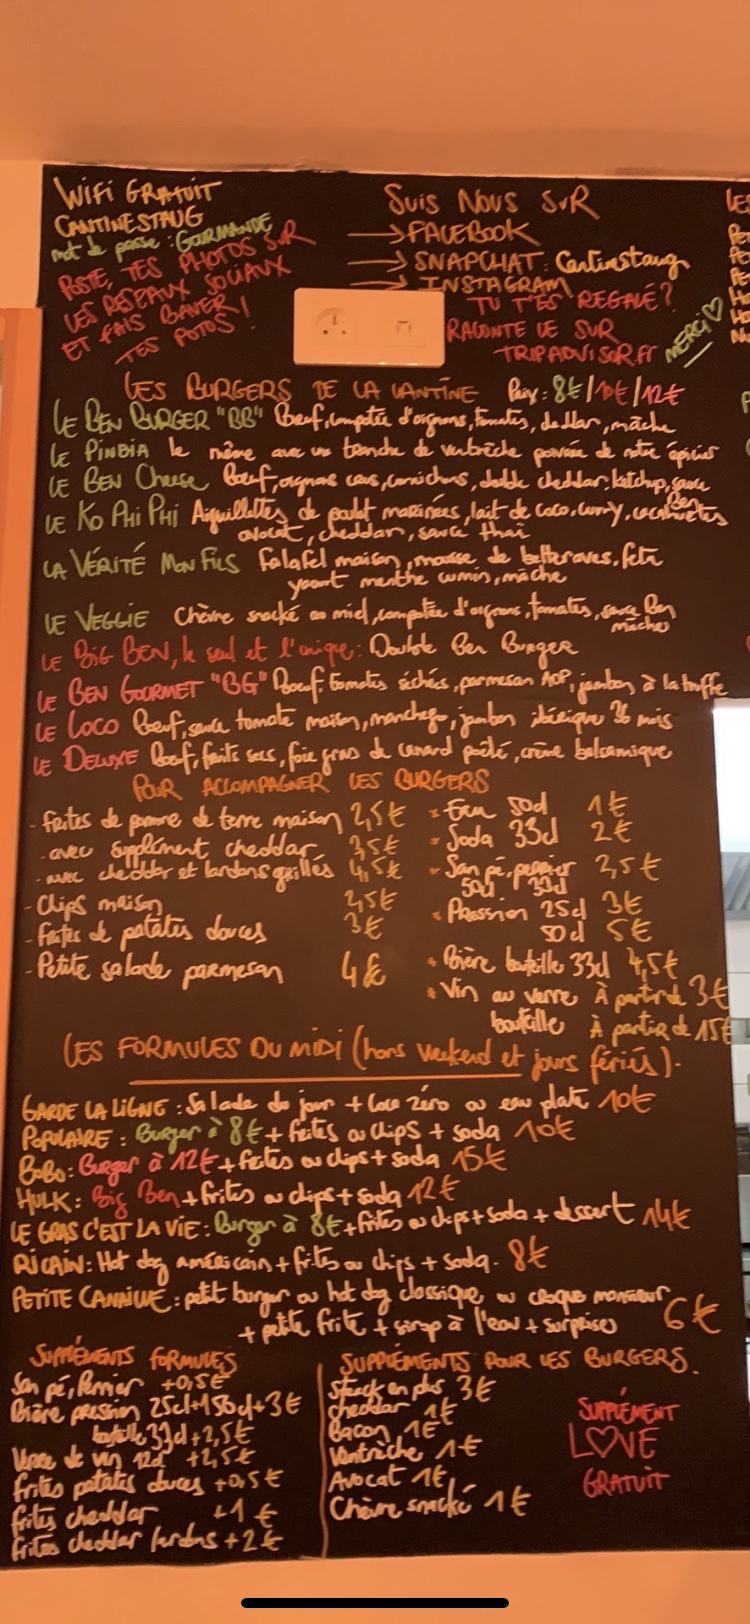 WiFi GRATUIT
CANTINESTAUG
mot de passe : GOURMANDE
POSTE TES PHOTOS SUR
LES RESEAUX SOCIAUX
ET FAIS BAVER
TES POTOS !
SUIS NOUS SUR
→ FACEBOOK
→ SNAPCHAT : Cantinestaug
→ INSTAGRAM
TU T'ES REGALÉ ?
RACONTE LE SUR
TRIPADVISOR.fr
MERCI ♡
LES BURGERS DE LA CANTINE Prix : 8€/10€/12€
LE BEN BURGER "BB" Boeuf, compotée d'oignons, tomates, cheddar, mâche
LE PINDIA le même avec une tranche de ventrèche poivrée de notre épicier
LE BEN Cheese Boeuf, oignons crus, cornichons, double cheddar, ketchup, sauce Ben
LE KO PHI PHI Aiguillettes de poulet marinées, lait de coco, curry, cacahuètes
avocat, cheddar, sauce thaï
LA VÉRITÉ MON FILS Falafel maison, mousse de betteraves, feta
yaourt menthe cumin, mâche
LE VEGGIE Chèvre snacké au miel, compotée d'oignons, tomates, sauce Ben
mâche
LE BIG BEN, le seul et l'unique : Double Ben Burger
LE BEN GOURMET "BG" Boeuf, tomates séchées, parmesan AOP, jambon à la truffe
LE LOCO Boeuf, sauce tomate maison, manchego, jambon ibérique 36 mois
LE DELUXE Boeuf, fruits secs, foie gras de canard poêlé, crème balsamique
POUR ACCOMPAGNER LES BURGERS
- Frites de pomme de terre maison 2,5€
- avec supplément cheddar 3,5€
- avec cheddar et lardons grillés 4,5€
- Chips maison 2,5€
- Frites de patates douces 3€
- Petite salade parmesan 4€
Eau 50cl 1€
Soda 33cl 2€
San pé, perrier 2,5€
50cl 33cl
Pression 25cl 3€
50cl 5€
Bière bouteille 33cl 4,5€
Vin au verre À partir de 3€
bouteille À partir de 15€
LES FORMULES DU MIDI (hors weekend et jours fériés).
GARDE LA LIGNE : Salade du jour + Coca Zéro ou eau plate 10€
POPULAIRE : Burger à 8€ + frites ou chips + soda 10€
BOBO : Burger à 12€ + frites ou chips + soda 15€
HULK : Big Ben + frites ou chips + soda 12€
LE GRAS C'EST LA VIE : Burger à 8€ + frites ou chips + soda + dessert 14€
RICAIN : Hot dog américain + frites ou chips + soda. 8€
PETITE CANAILLE : petit burger ou hot dog classique ou croque monsieur
+ petite frite + sirop à l'eau + surprises 6€
SUPPLÉMENTS FORMULES
San pé, Perrier +0,5€
Bière pression 25cl+1 50cl+3€
bouteille 33cl +2,5€
Verre de vin 12cl +2,5€
frites patates douces +0,5€
frites cheddar +1€
frites cheddar lardons +2€
SUPPLÉMENTS POUR LES BURGERS.
steack en plus 3€
cheddar 1€
Bacon 1€
Ventrèche 1€
Avocat 1€
Chèvre snacké 1€
SUPPLÉMENT
LOVE
GRATUIT